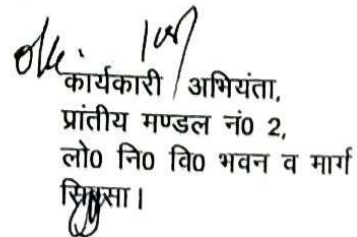 कार्यकारी अभियंता,
प्रांतीय मण्डल नं0 2,
लो0 नि0 वि0 भवन व मार्ग
सिरसा।